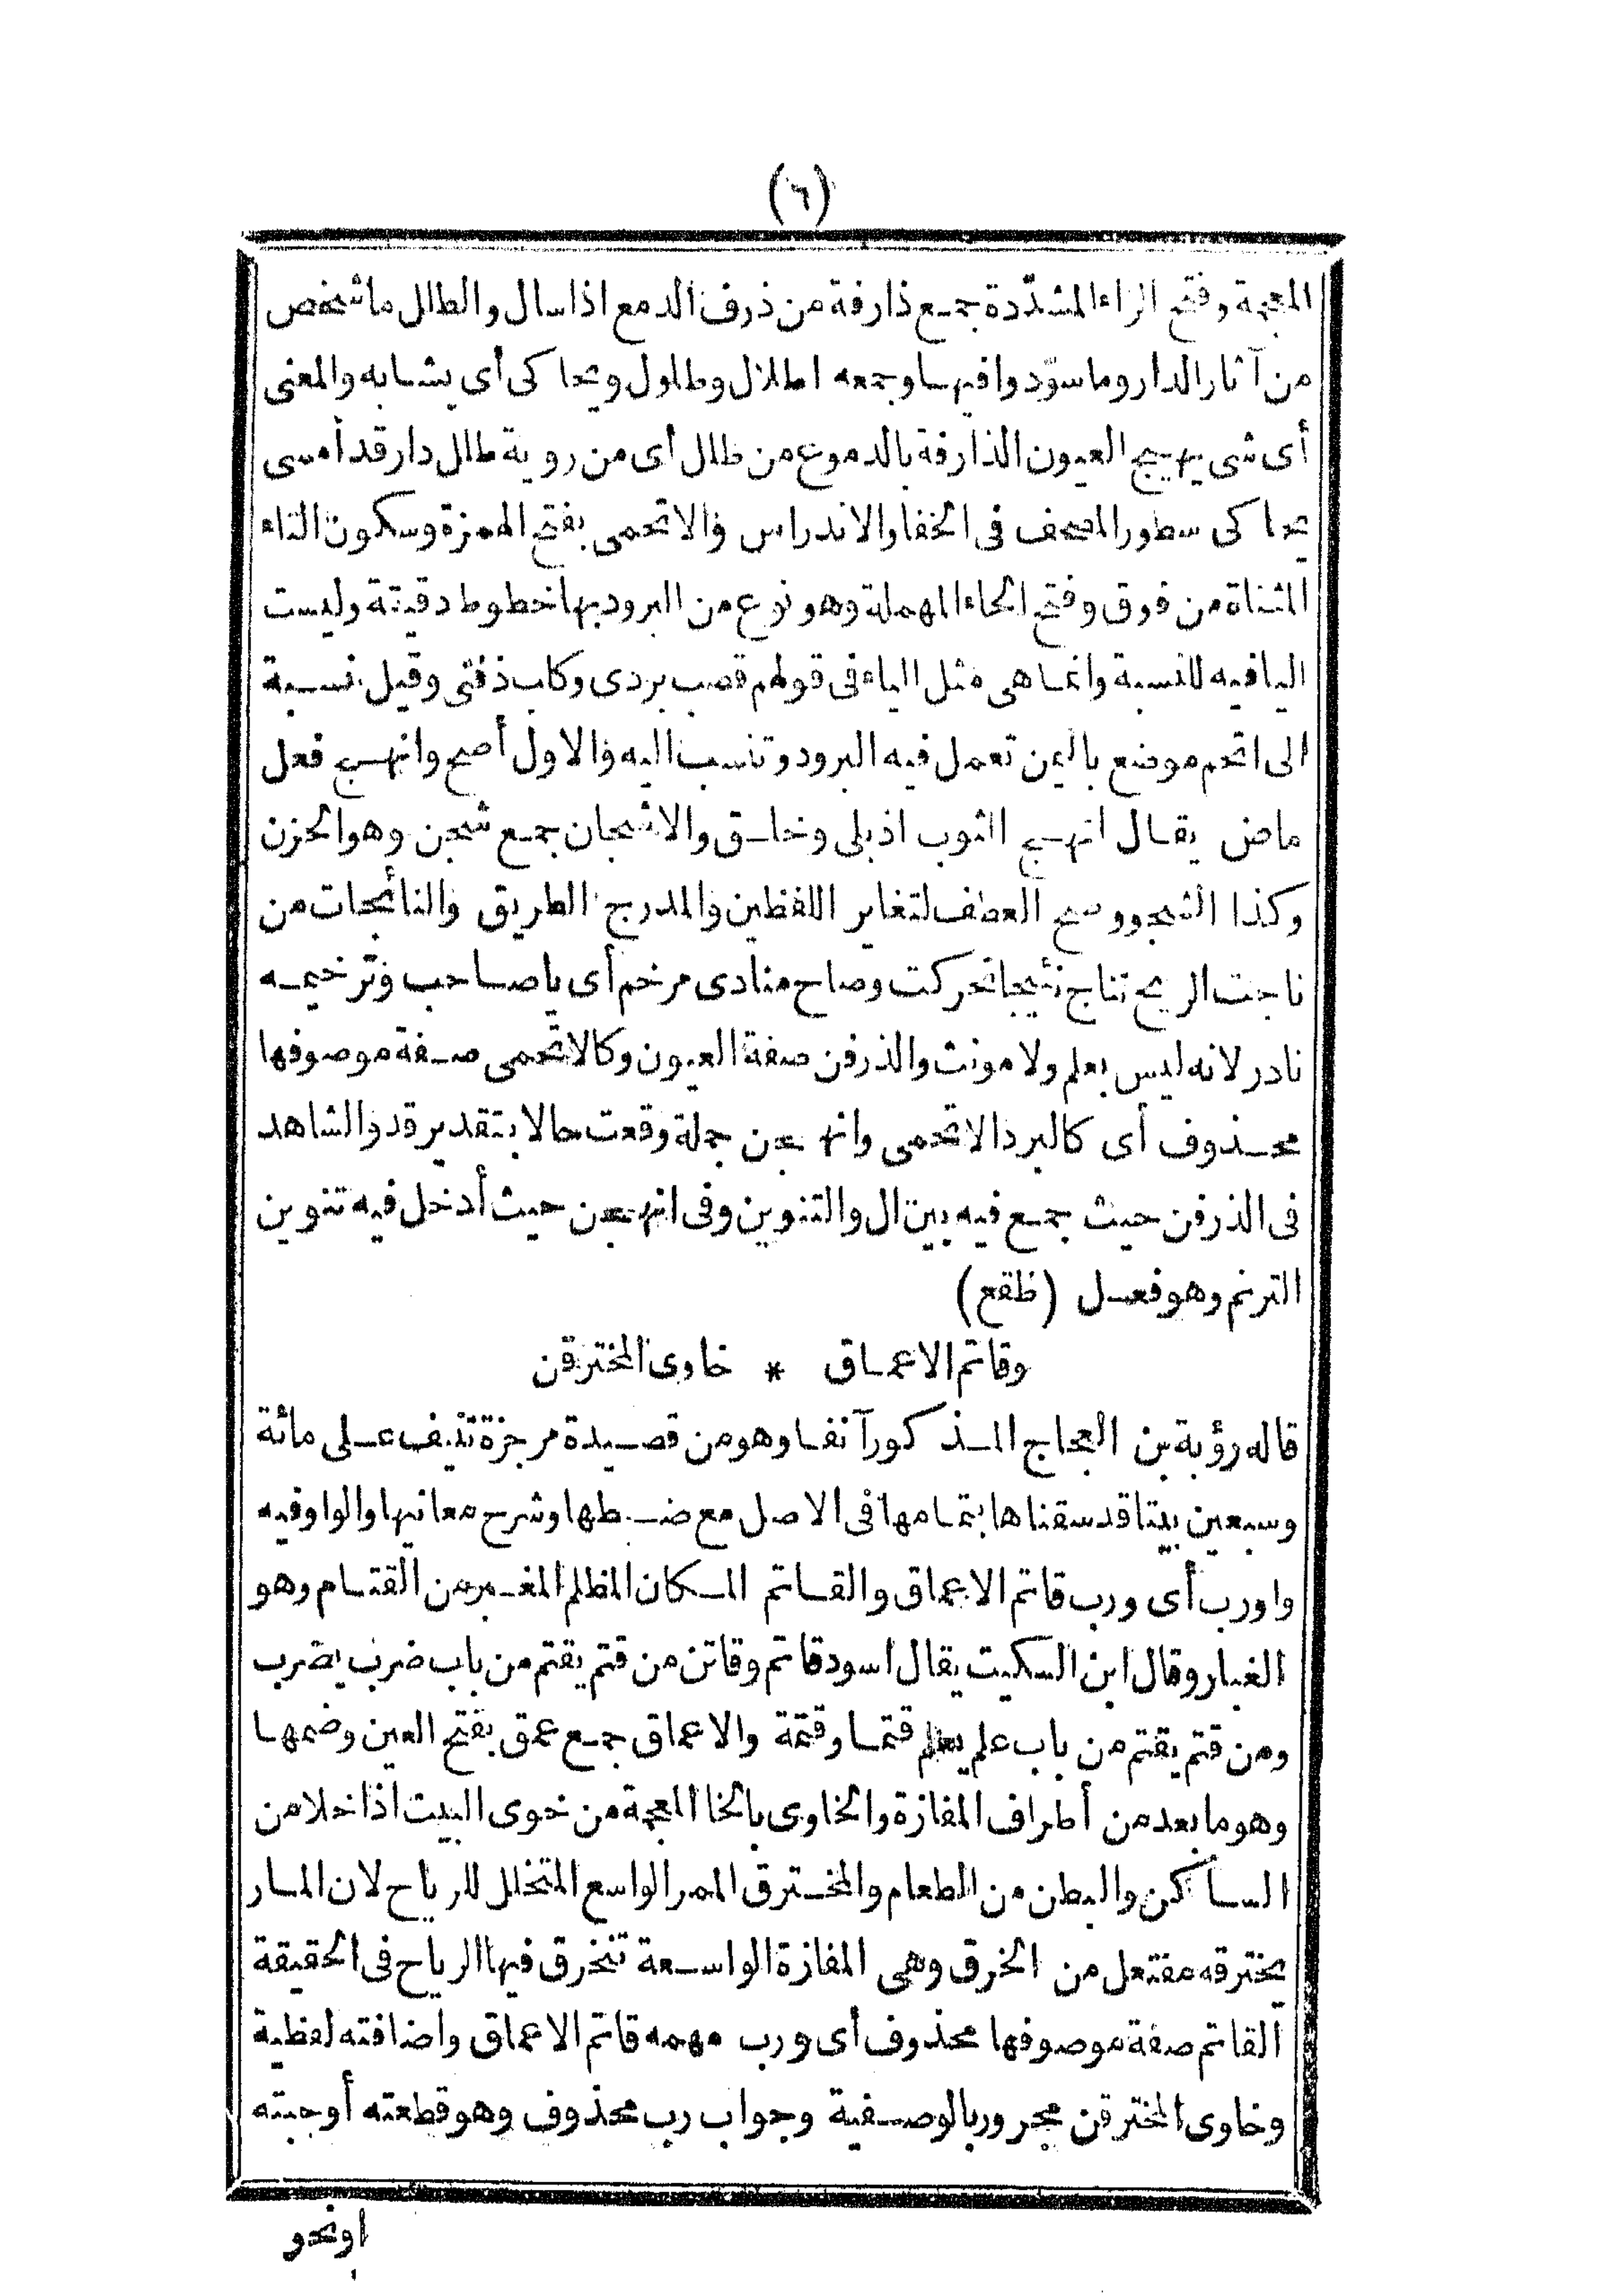 (٦)
المعجمة وفتح الراء المشدّدة جمع ذارفة من ذرف الدمع اذا سال والطلل ما شخص
من آثار الدار وما سوّدوا فيها وجمعه اطلال وطلول ويحاكى أى يشابه والمعنى
أى شى يهيج العيون الذارفة بالدموع من طلل أى من روية طلل دار قد أمسى
يحاكى سطور المصحف فى الخفا والاندراس والاتحمى بفتح الهمزة وسكون التاء
المثناة من فوق وفتح الحاء المهملة وهو نوع من البرود بها خطوط دقيقة وليست
اليا فيه للنسبة وانما هى مثل الياء فى قولهم قصب بردى وكلب ذفتى وقيل نسبة
الى اتحم موضع باليمن تعمل فيه البرود وتنسب اليه والاول أصح وانهج فعل
ماض يقال انهج الثوب اذ بلى وخلق والاشجان جمع شجن وهو الحزن
وكذا الشجو وصح العطف لتغاير اللفظين والمدرج الطريق والنائجات من
ناجت الريح تناج نئيجا تحركت وصاح منادى مرخم أى يا صاحب وترخيمه
نادر لانه ليس بعلم ولا مونث والذرفن صفة العيون وكالاتحمى صفة موصوفها
محذوف أى كالبرد الاتحمى وانهجن جملة وقعت حالا بتقدير قد والشاهد
فى الذرفن حيث جمع فيه بين ال والتنوين وفى انهجن حيث أدخل فيه تنوين
الترنم وهو فعل (ظقع)
وقاتم الاعماق * خاوى المخترقن
قاله رؤبة بن العجاج المذكور آنفا وهو من قصيدة مرجزة تنيف على مائة
وسبعين بيتا قد سقناها بتمامها فى الاصل مع ضبطها وشرح معانيها والواو فيه
واو رب أى ورب قاتم الاعماق والقاتم المكان المظلم المغبر من القتام وهو
الغبار وقال ابن السكيت يقال اسود قاتم وقاتن من قتم يقتم من باب ضرب يضرب
ومن قتم يقتم من باب علم يعلم قتما وقتمة والاعماق جمع عمق بفتح العين وضمها
وهو ما بعد من أطراف المفازة والخاوى بالخا المعجمة من خوى البيت اذا خلا من
الساكن والبطن من الطعام والمخترق الممر الواسع المتخلل للرياح لان المار
يخترقه مفتعل من الخرق وهى المفازة الواسعة تنخرق فيها الرياح فى الحقيقة
القاتم صفة موصوفها محذوف أى ورب مهمه قاتم الاعماق واضافته لفظية
وخاوى المخترقن مجرور بالوصفية وجواب رب محذوف وهو قطعته أو جبته
او نحو